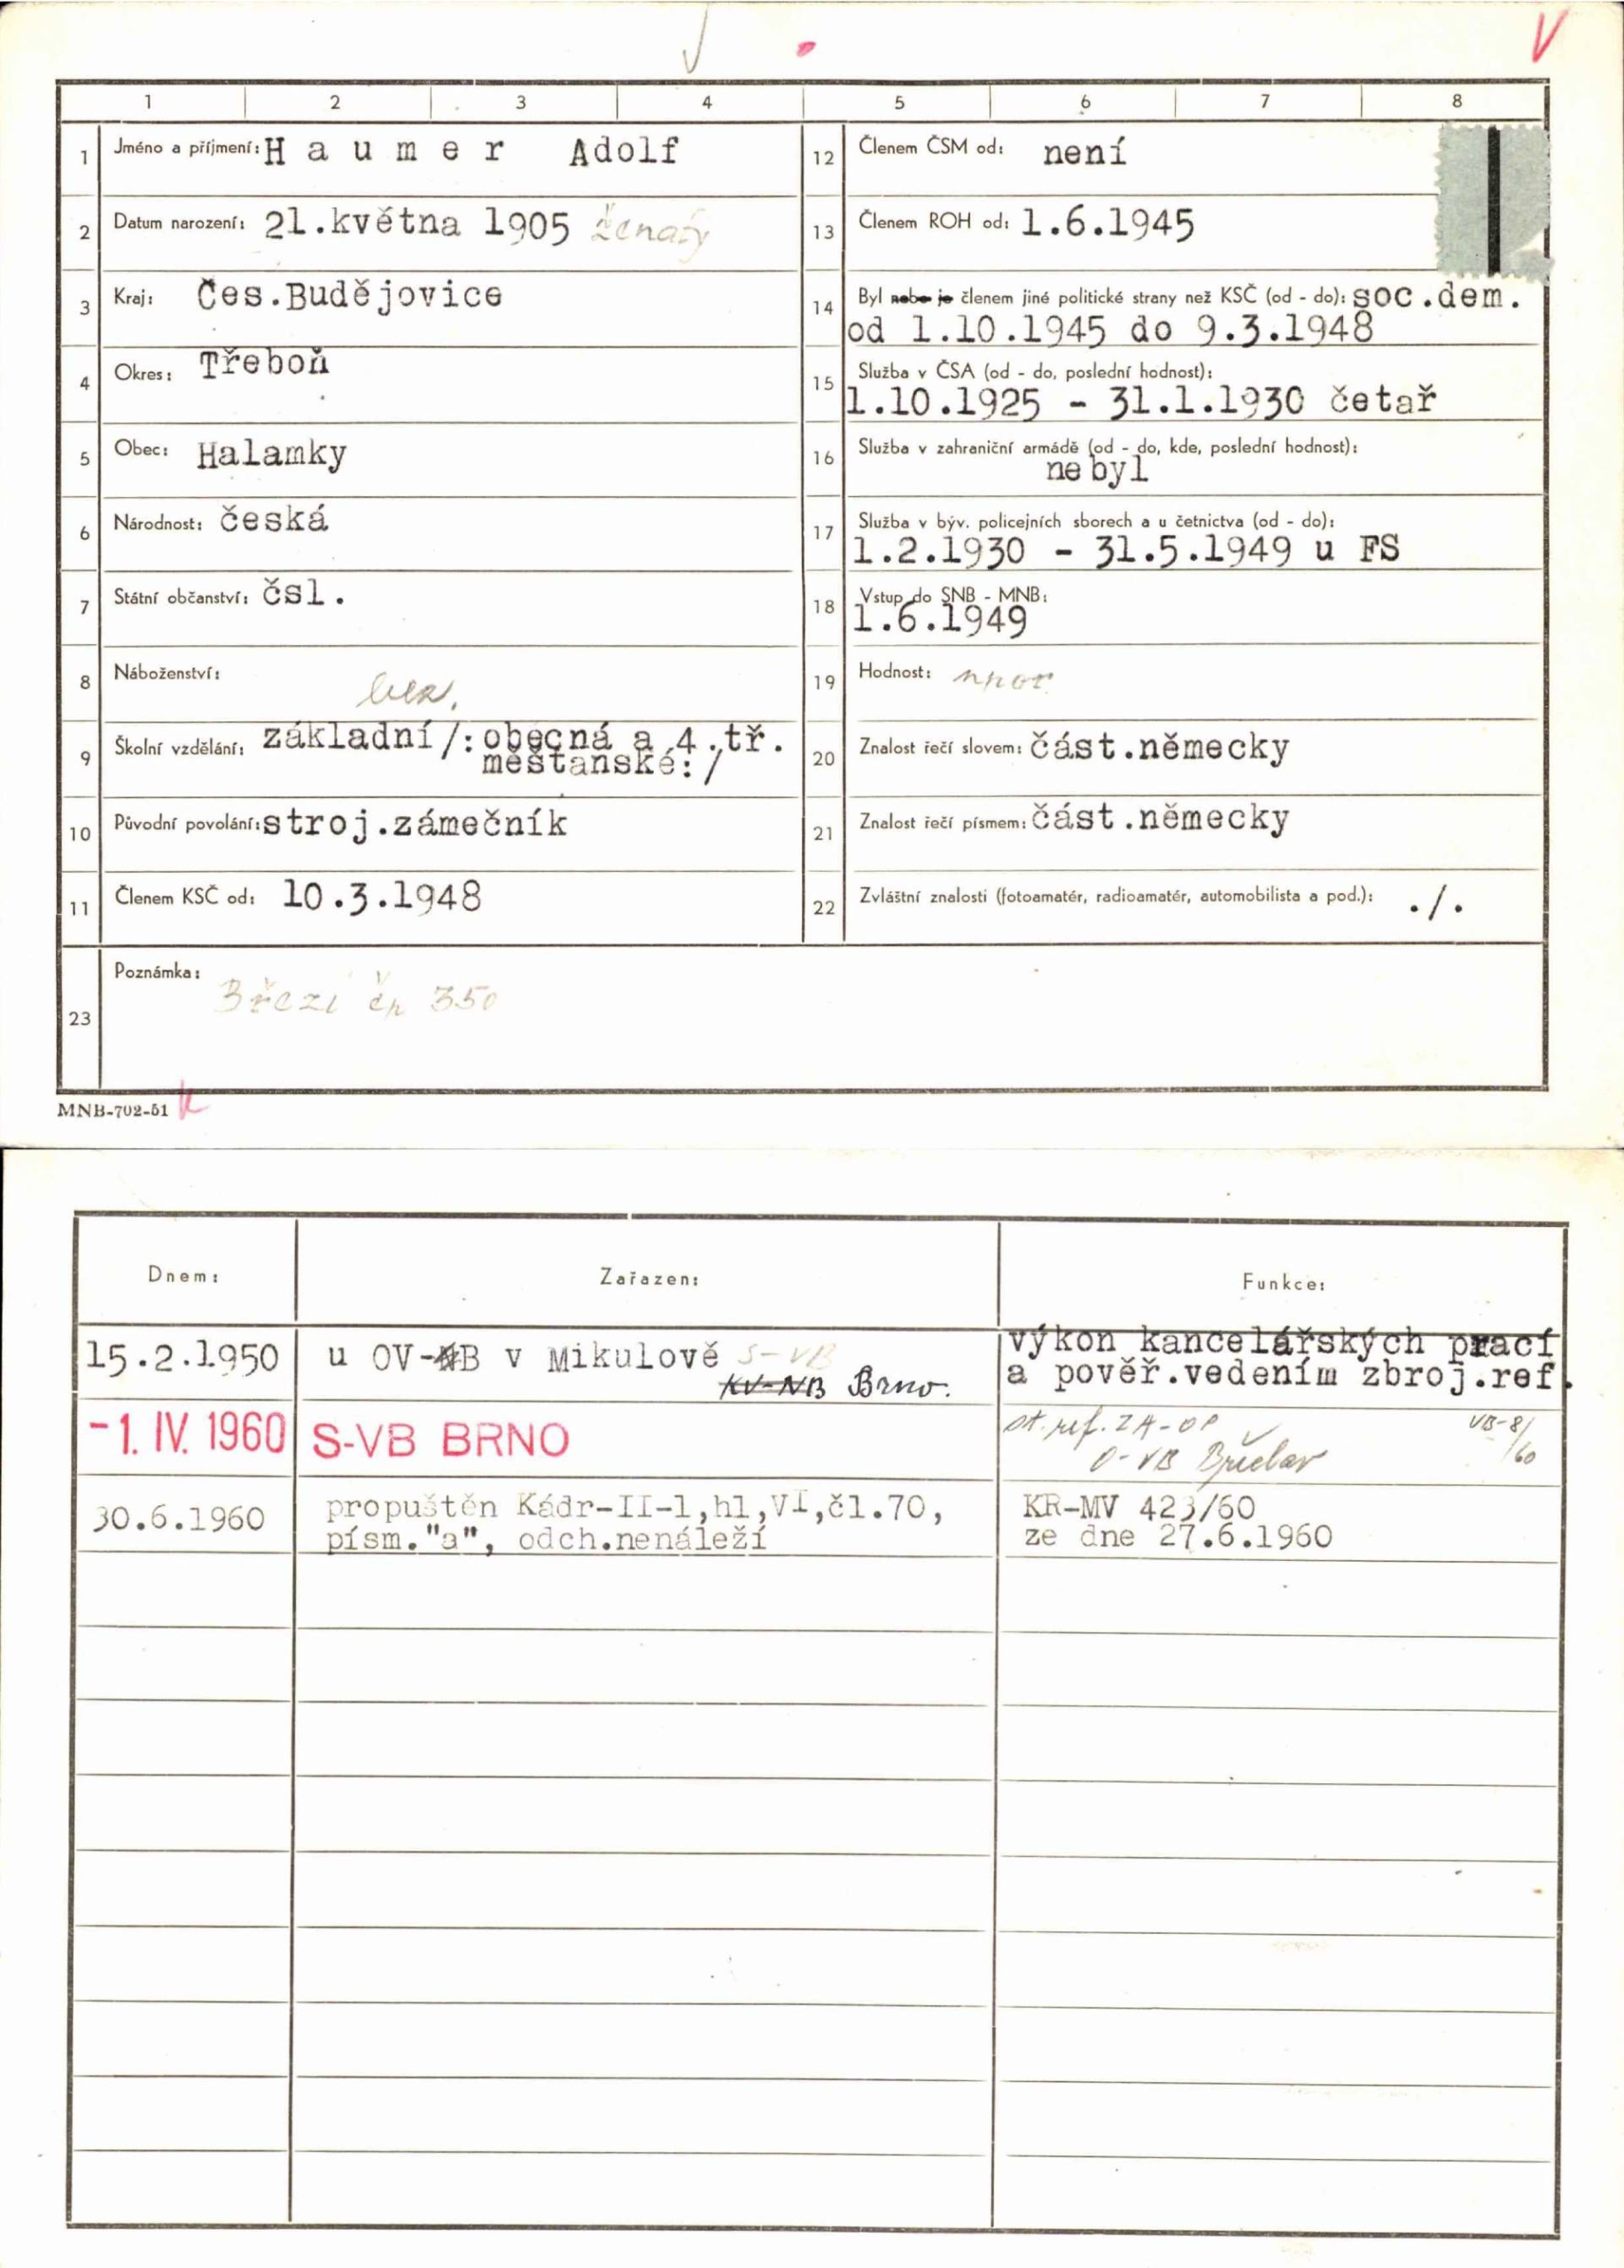 1 2 3 4 5 6 7 8
1 Jméno a příjmení: H a u m e r Adolf
2 Datum narození: 21.května 1905 ženatý
3 Kraj: Čes.Budějovice
4 Okres: Třeboň
5 Obec: Halamky
6 Národnost: česká
7 Státní občanství: čsl.
8 Náboženství: bez.
9 Školní vzdělání: základní/:obecná a 4.tř.
měšťanské:/
10 Původní povolání: stroj.zámečník
11 Členem KSČ od: 10.3.1948
12 Členem ČSM od: není
13 Členem ROH od: 1.6.1945
14 Byl nebo je členem jiné politické strany než KSČ (od - do): soc.dem.
od 1.10.1945 do 9.3.1948
15 Služba v ČSA (od - do, poslední hodnost):
1.10.1925 - 31.1.1930 četař
16 Služba v zahraniční armádě (od - do, kde, poslední hodnost):
nebyl
17 Služba v býv. policejních sborech a u četnictva (od - do):
1.2.1930 - 31.5.1949 u FS
18 Vstup do SNB - MNB:
1.6.1949
19 Hodnost: npor
20 Znalost řečí slovem: část.německy
21 Znalost řečí písmem: část.německy
22 Zvláštní znalosti (fotoamatér, radioamatér, automobilista a pod.): ./.
23 Poznámka:
Březí čp 350
MNB-702-51
Dnem: Zařazen: Funkce:
15.2.1950 u OV-B v Mikulově S-VB
KV-NB Brno.
výkon kancelářských prací
a pověř.vedením zbroj.ref.
-1. IV. 1960 S-VB BRNO
st. ref. ZA-OP VB-8/
/60
O-VB Břeclav
30.6.1960 propuštěn Kádr-II-1,hl,VI,čl.70,
písm."a", odch.nenáleží
KR-MV 423/60
ze dne 27.6.1960